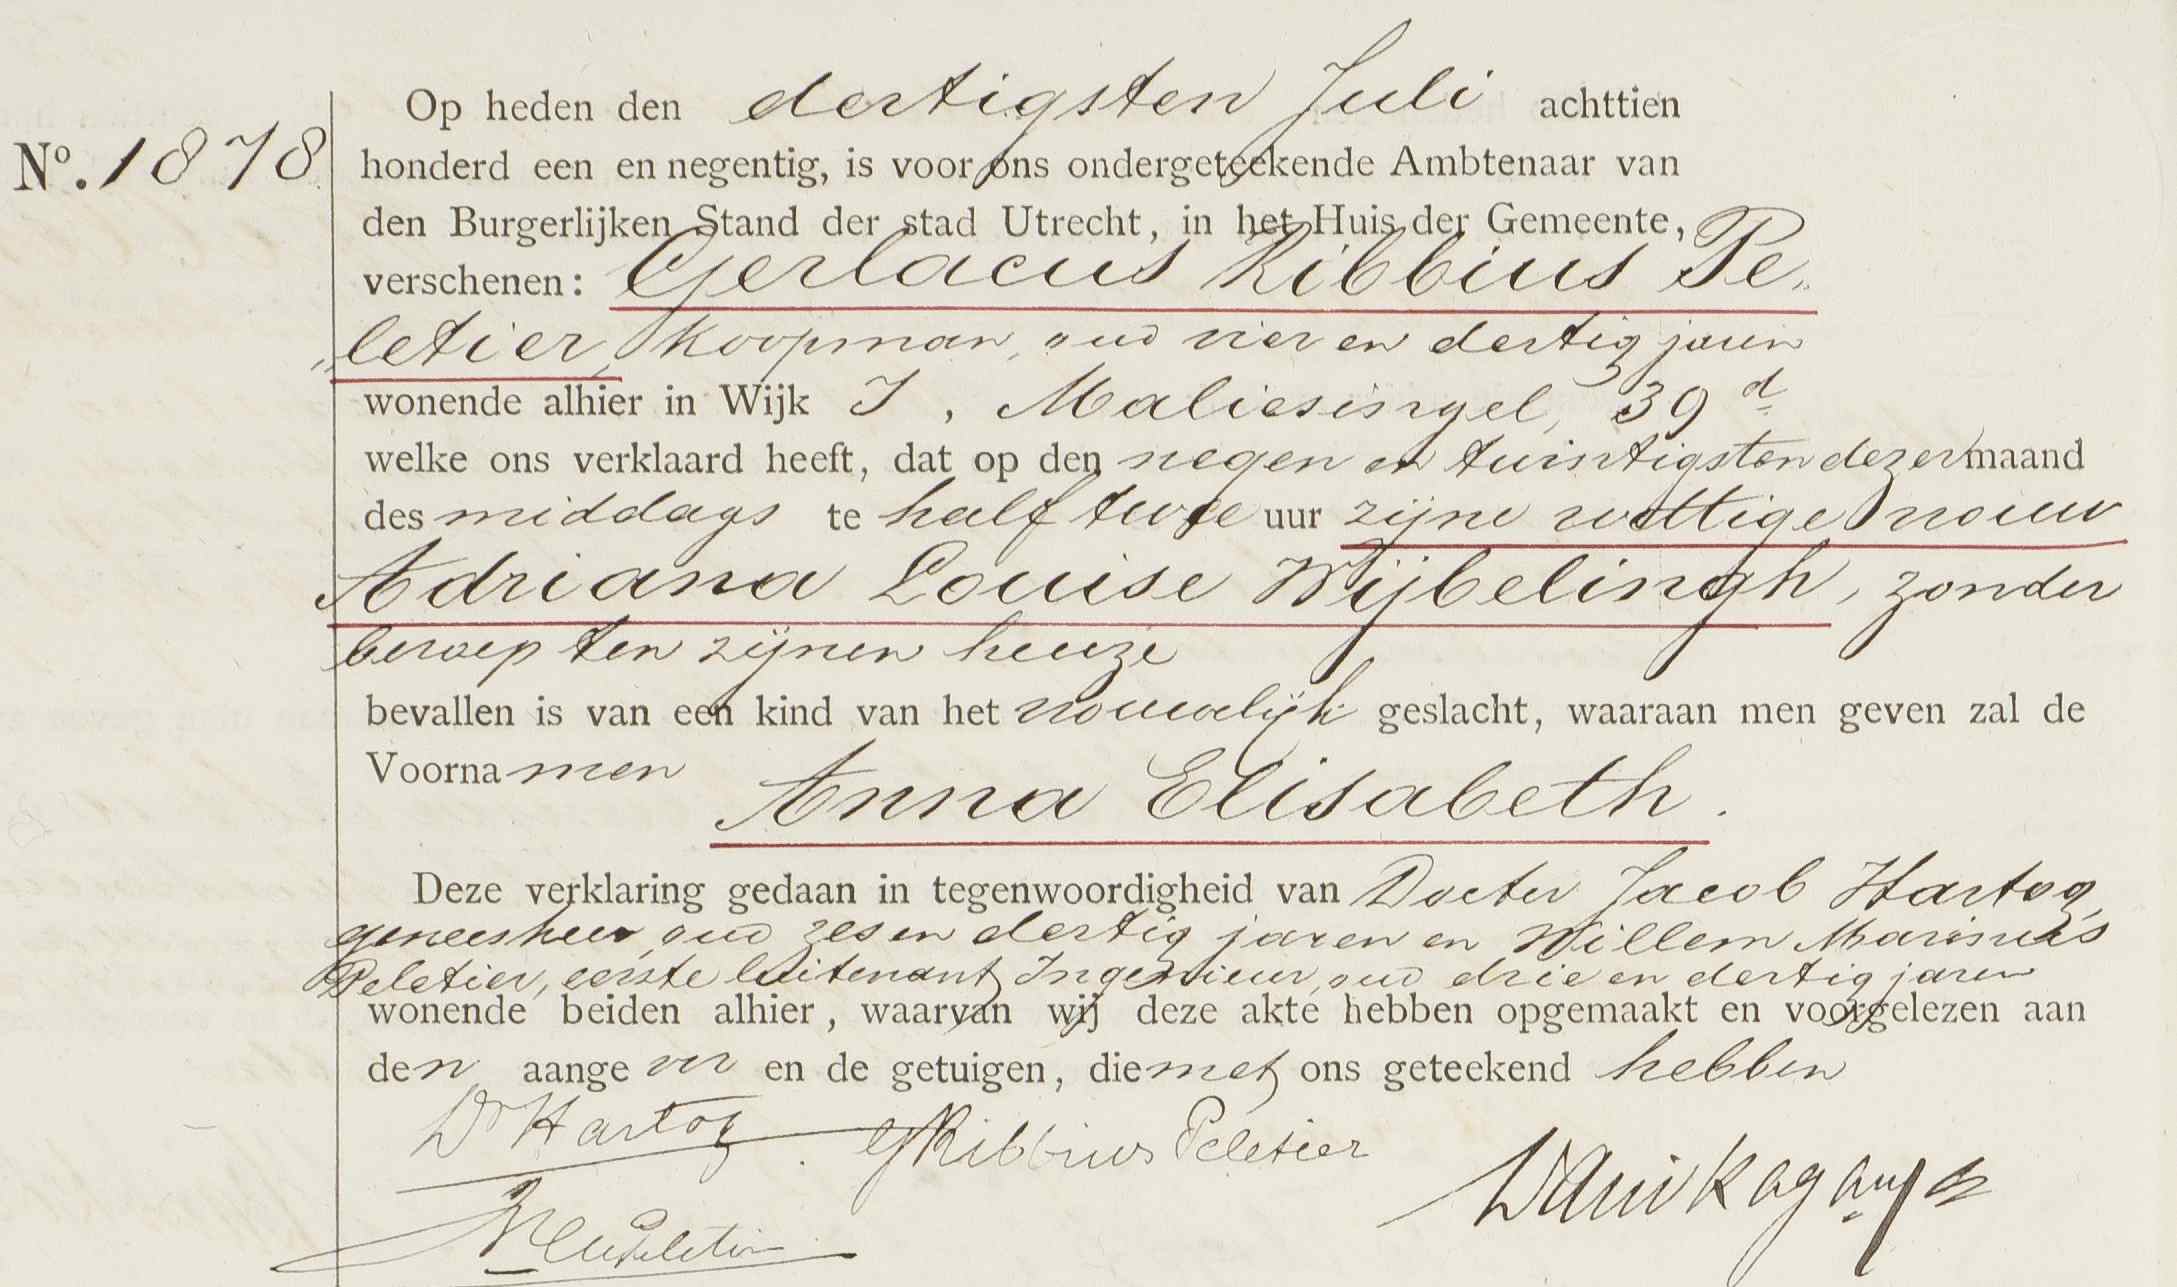 Op heden den dertigsten Juli achttien
No. 1878 honderd een en negentig, is voor ons ondergeteekende Ambtenaar van
den Burgerlijken Stand der stad Utrecht, in het Huis der Gemeente,
verschenen: Gerlacus Ribbius Pe„
„letier, koopman, oud vier en dertig jaren
wonende alhier in Wijk I, Maliesingel, 39d
welke ons verklaard heeft, dat op den negen en twintigsten dezer maand
des middags te half twee uur zijne wettige vrouw
Adriana Louise Wijbelingh, zonder
beroep ten zijnen huize
bevallen is van een kind van het vrouwelijk geslacht, waaraan men geven zal de
Voornamen Anna Elisabeth.
Deze verklaring gedaan in tegenwoordigheid van Docter Jacob Hartog,
geneesheer, oud zes en dertig jaren en Willem Marinus
Peletier, eerste luitenant Ingenieur, oud drie en dertig jaren
wonende beiden alhier, waarvan wij deze akte hebben opgemaakt en voorgelezen aan
den aangever en de getuigen, die met ons geteekend hebben
Dr Hartog GRibbius Peletier
Peletier